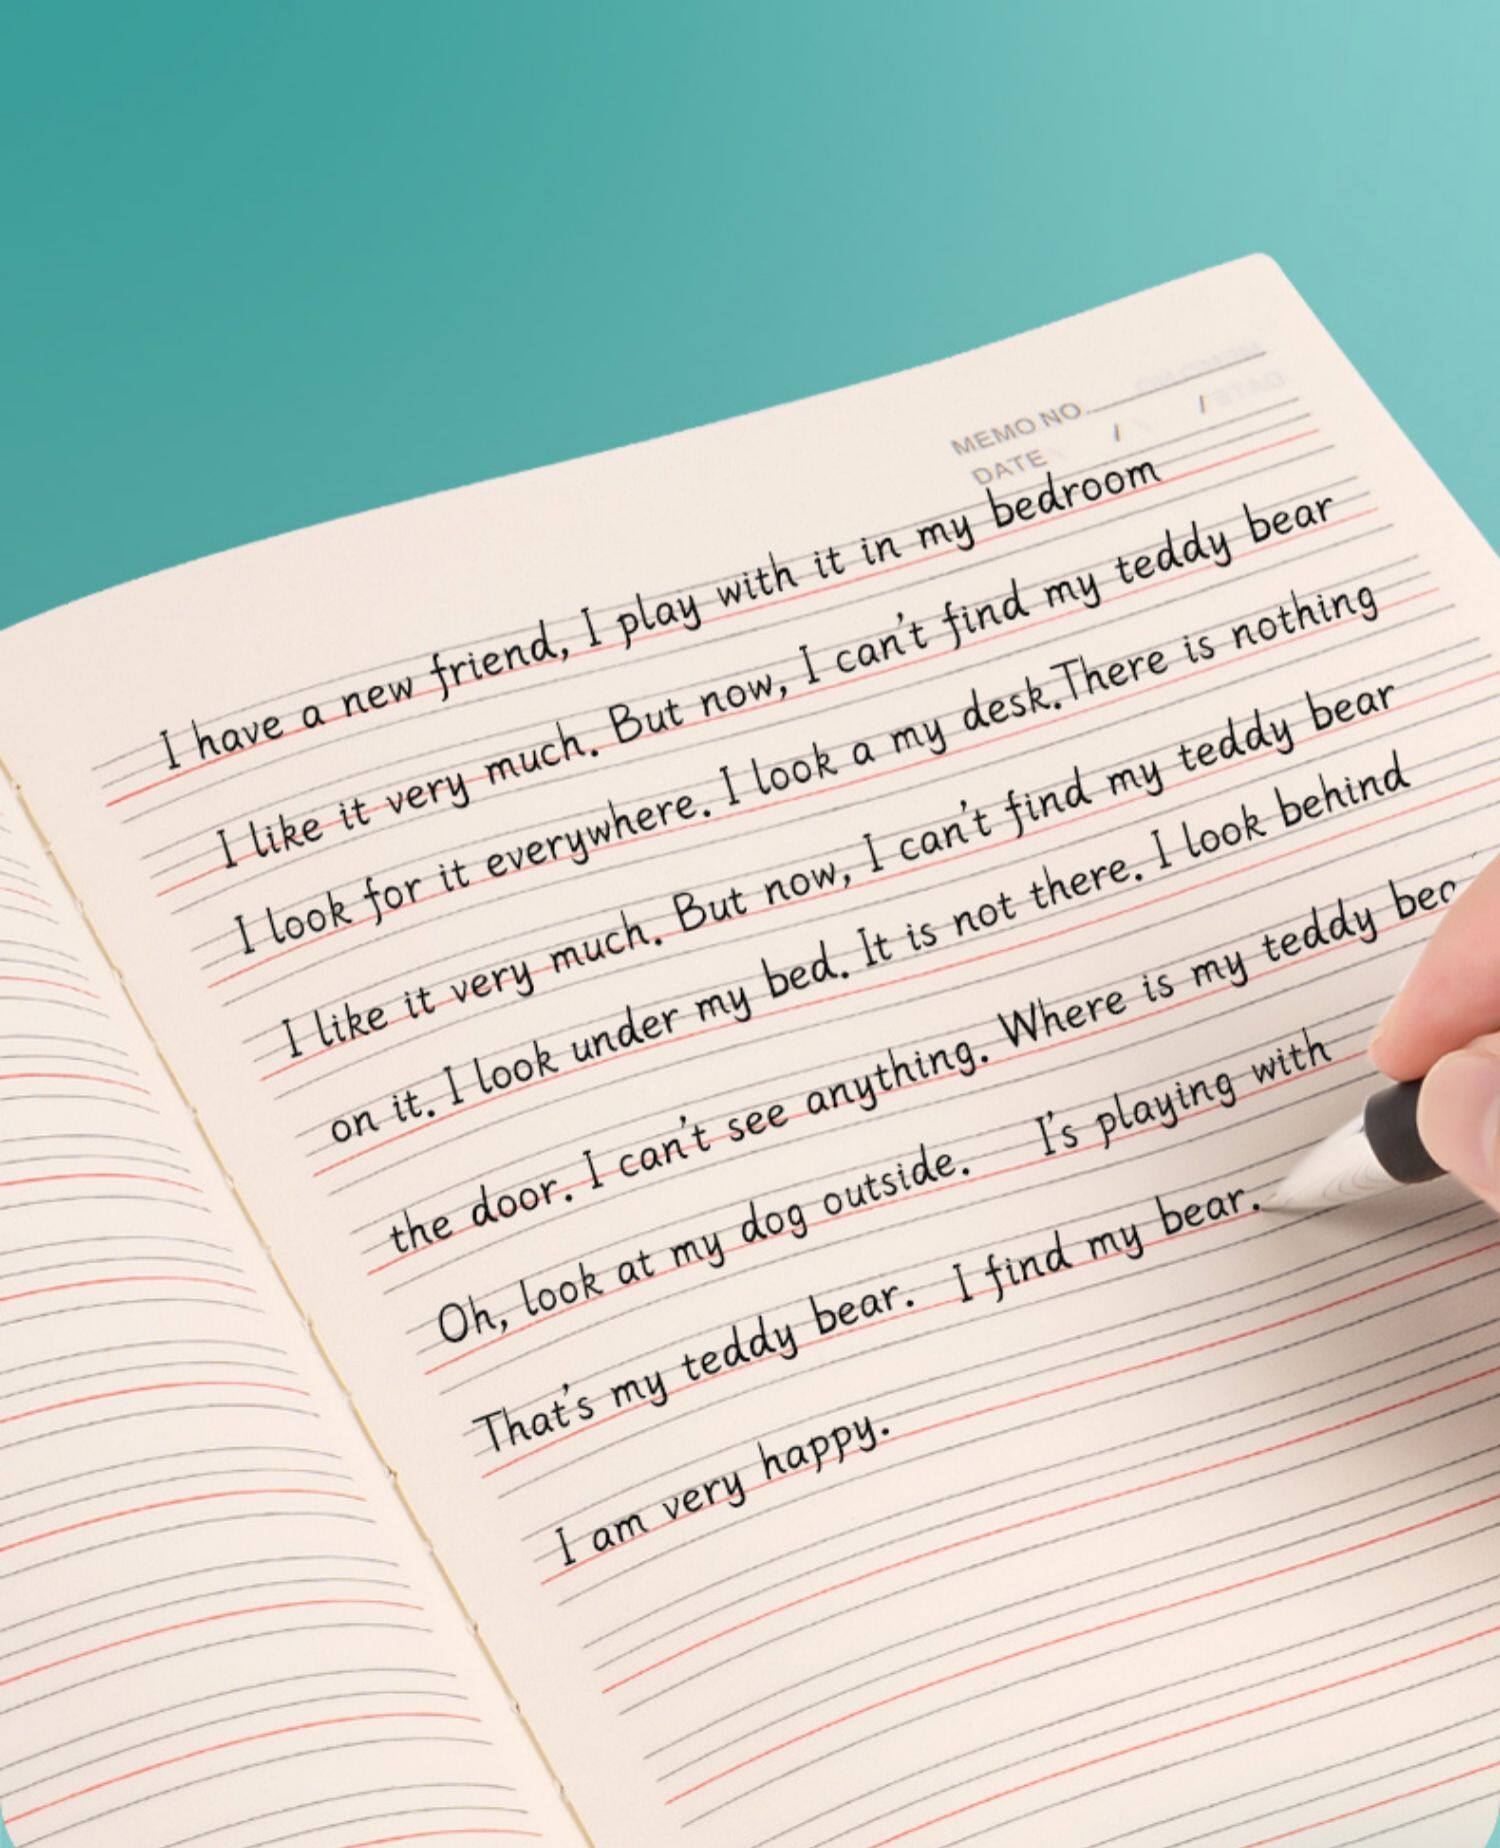 MEMO NO.
DATE / /
I have a new friend, I play with it in my bedroom
I like it very much. But now, I can't find my teddy bear
I look for it everywhere. I look a my desk.There is nothing
I like it very much. But now, I can't find my teddy bear
on it. I look under my bed. It is not there. I look behind
the door. I can't see anything. Where is my teddy
Oh, look at my dog outside. I's playing with
That's my teddy bear. I find my bear.
I am very happy.